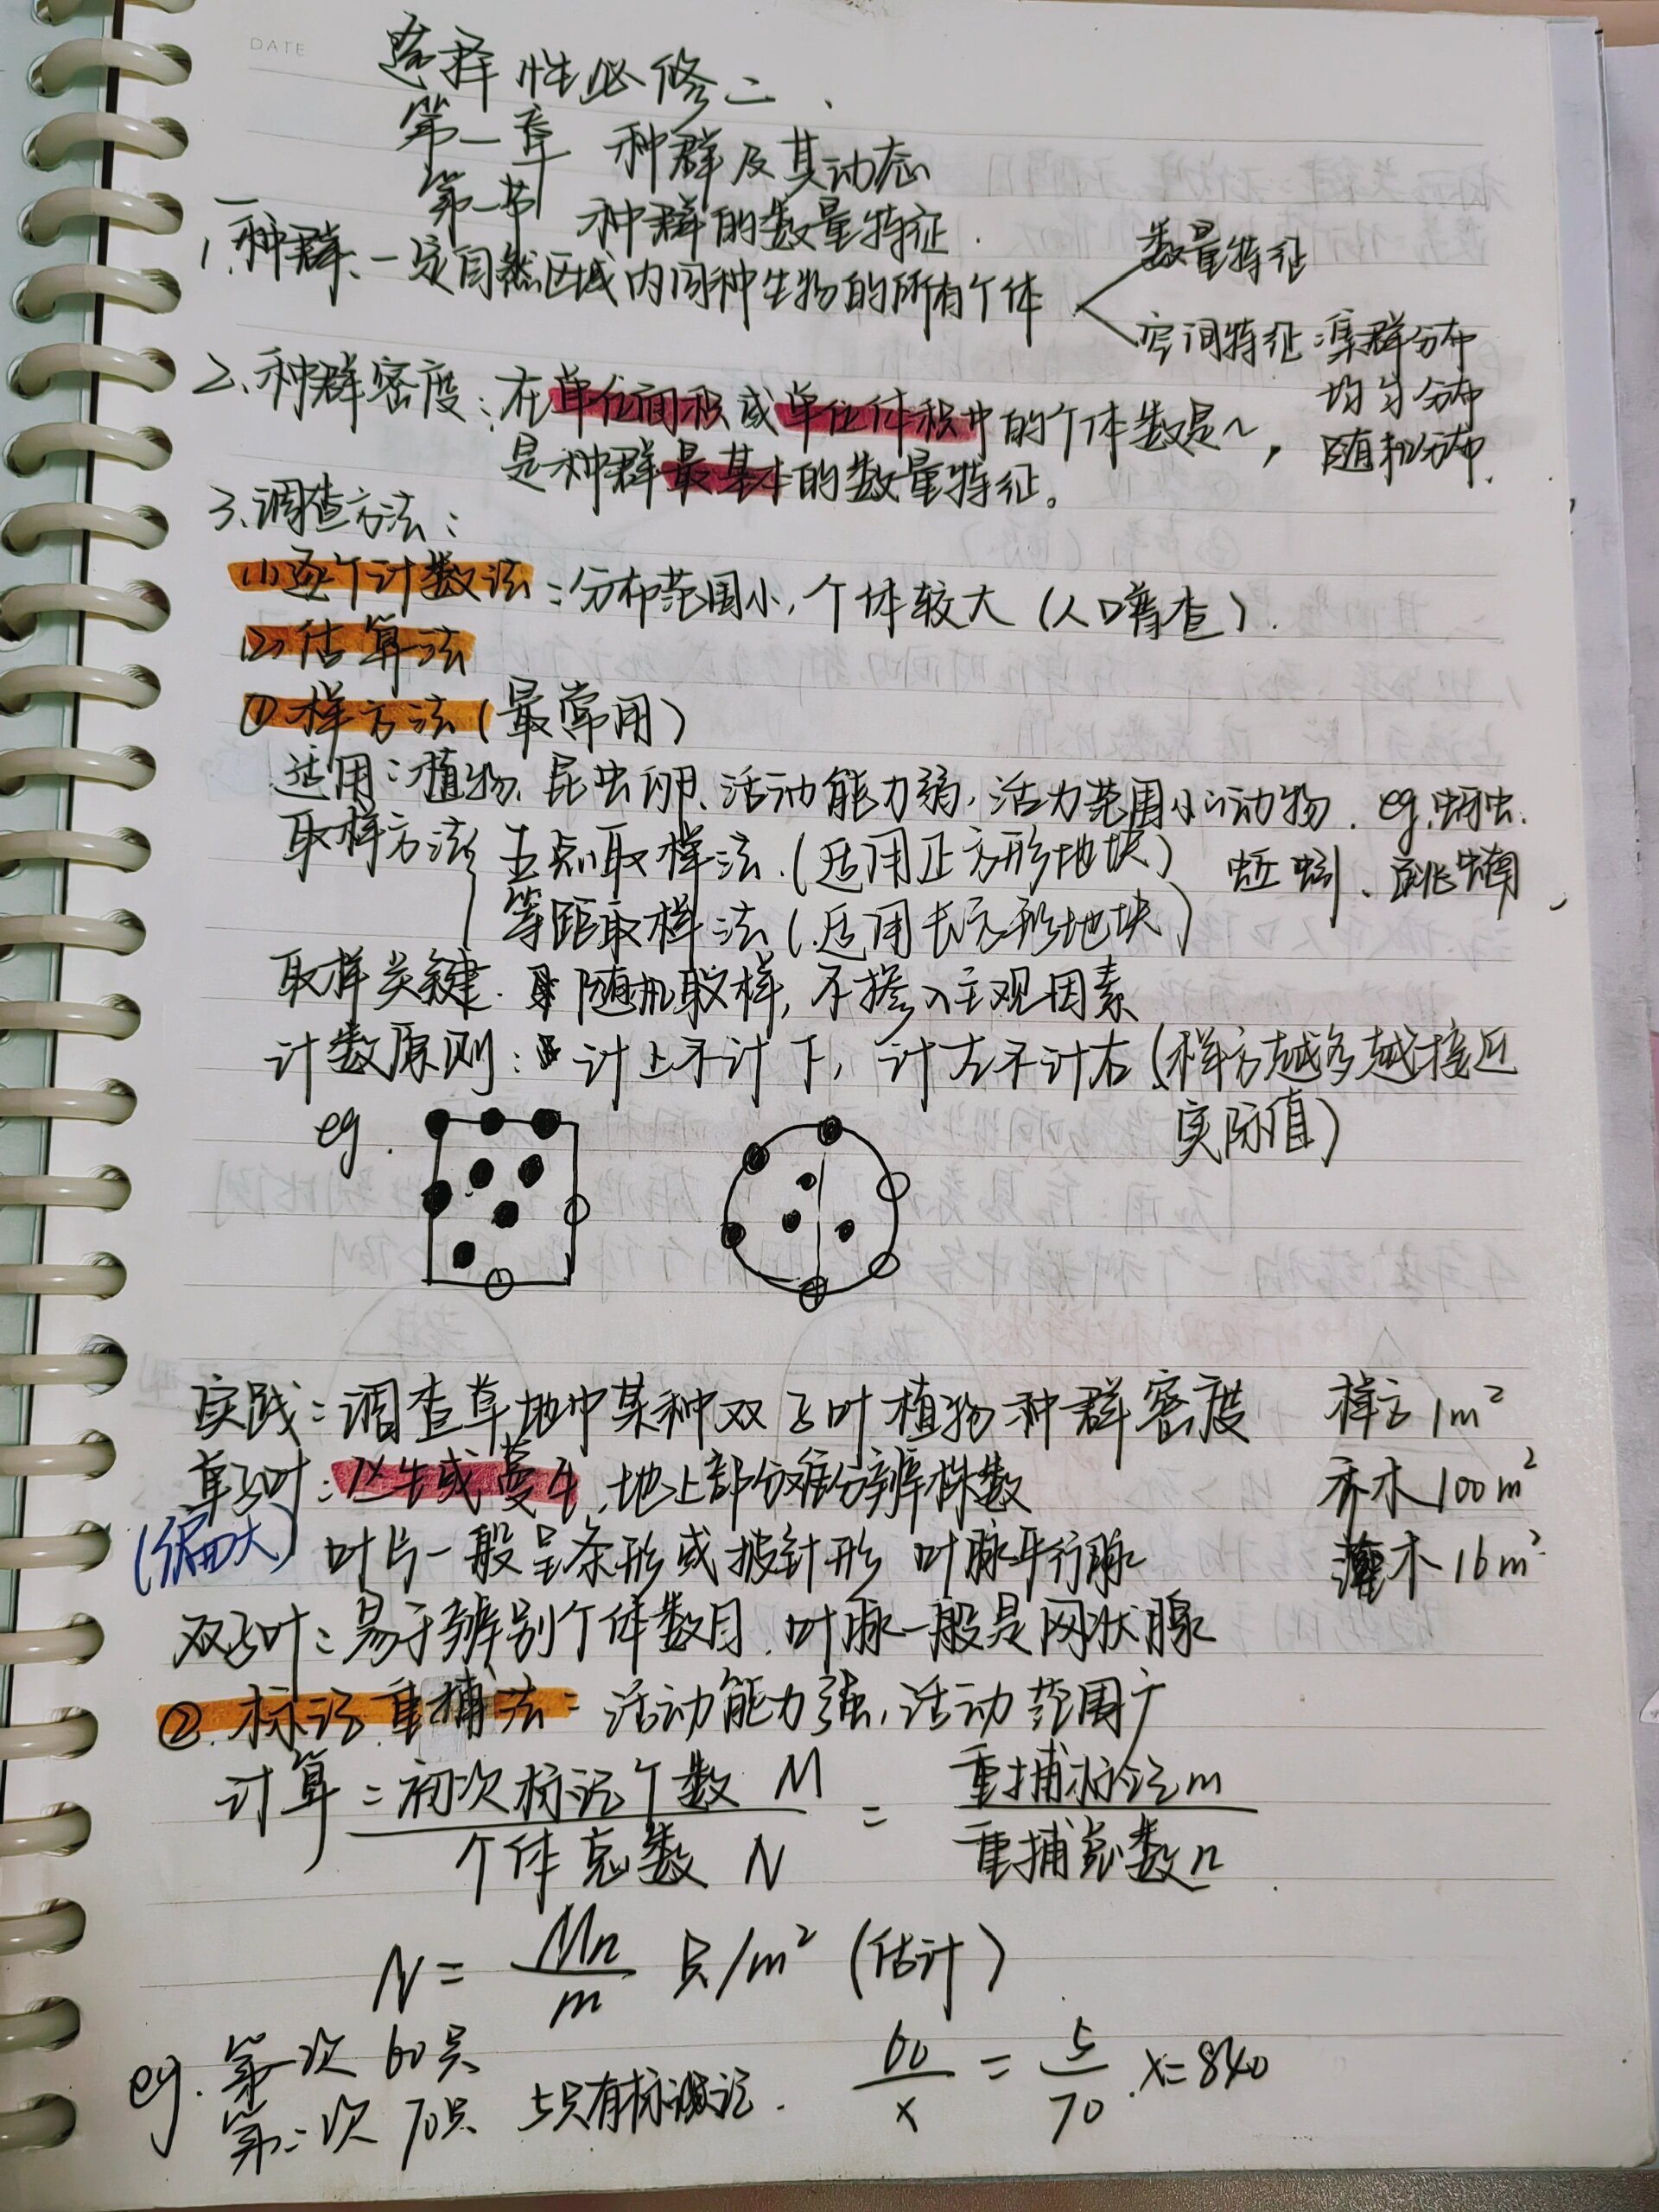 DATE
选择性必修二、
第一章 种群及其动态
第一节 种群的数量特征.
一
1.种群、一定自然区域内同种生物的所有个体
数量特征
空间特征:集群分布
均匀分布
随机分布.
2、种群密度:在单位面积或单位体积中的个体数是~,
是种群最基本的数量特征。
3、调查方法:
(1)逐个计数法:分布范围小,个体较大(人口普查).
(2)估算法
①样方法(最常用)
适用:植物、昆虫卵、活动能力弱,活力范围小动物. eg.蚜虫.
蚯蚓、跳蝻、
取样方法 五点取样法.(适用正方形地块)
等距取样法(适用长方形地块)
取样关键. 随机取样,不掺入主观因素
计数原则: 计上不计下,计左不计右(样方越多越接近
实际值)
eg.
实践:调查草地中某种双子叶植物种群密度 样方1m²
单子叶:丛生或蔓生,地上部分难分辨株数 乔木100m²
(偏大) 叶片一般呈条形或披针形 叶脉平行脉 灌木16m²
双子叶:易于辨别个体数目.叶脉一般是网状脉
②.标记重捕法:活动能力强,活动范围广
计算:初次标记个数 M/个体总数 N = 重捕标记m/重捕总数n.
N= Mn/m 只/m²(估计)
eg. 第一次 60只
第二次 70只 5只有标记. 60/x = 5/70 .x=840